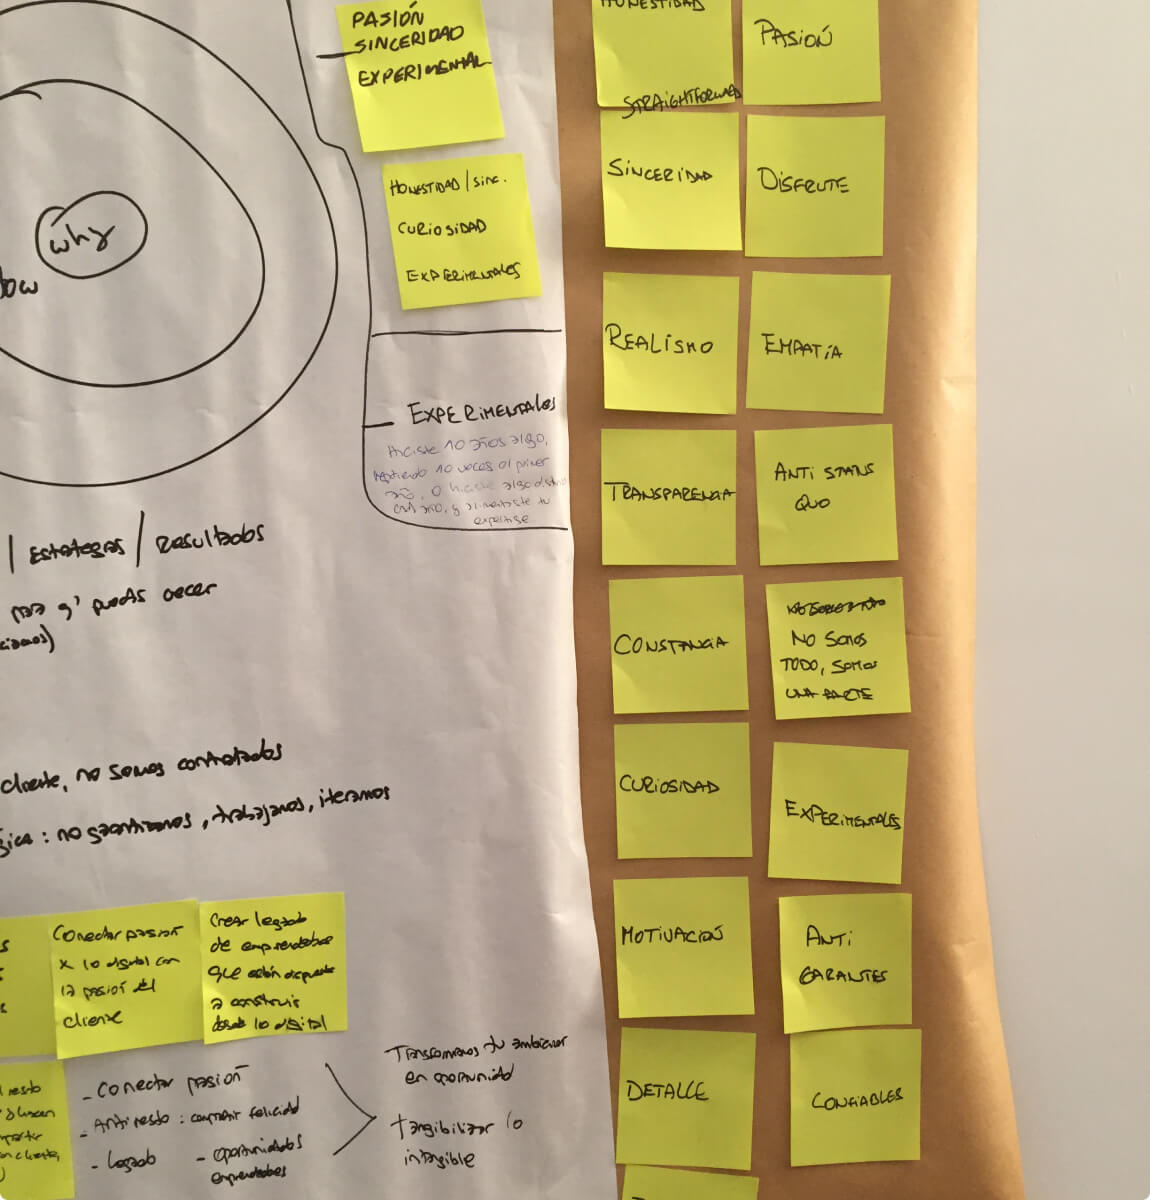 PASIÓN
SINCERIDAD
EXPERIMENTAL
HONESTIDAD / SINC.
CURIOSIDAD
EXPERIMENTALES
why
EXPERIMENTALES
Haciste 10 años algo,
repitiendo 10 veces el primer
año, o hiciste algo distinto
cada año, y alimentaste tu
expertise
| Estrategas / Resultados
para q' puedas crecer
cliente, no somos contratados
: no garantizamos, trabajamos, iteramos
Conectar pasión
x lo digital con
la pasión del
cliente
Crear legado
de emprendedores
que estén dispuestos
a construir
desde lo digital
- Conectar pasión
- Anti resto : compartir felicidad
- Legado
- oportunidades
emprendedores
Transformamos tu ambición
en oportunidad
tangibilizar lo
intangible
HONESTIDAD
STRAIGHTFORWARD
SINCERIDAD
REALISMO
TRANSPARENCIA
CONSTANCIA
CURIOSIDAD
MOTIVACIÓN
DETALLE
PASIÓN
DISFRUTE
EMPATÍA
ANTI STATUS
QUO
NO SOMOS
TODO, SOMOS
UNA PARTE
EXPERIMENTALES
ANTI
GARANTES
CONFIABLES